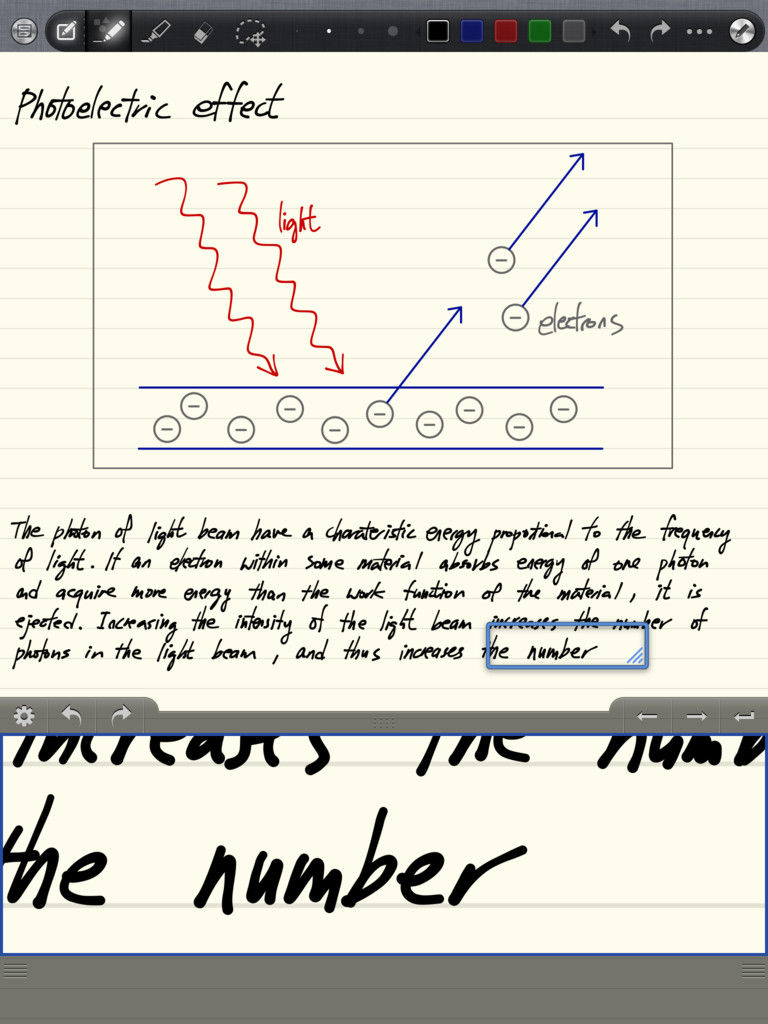 Photoelectric effect
light
electrons
The photon of light beam have a charateristic energy proportional to the frequency
of light. If an electron within some material absorbs energy of one photon
and acquire more energy than the work function of the material, it is
ejected. Increasing the intensity of the light beam increases the number of
photons in the light beam, and thus increases the number
increases the numb
the number